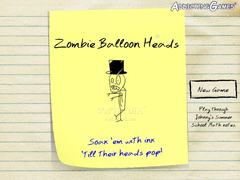 AddictingGames
Zombie Balloon Heads
New Game
Play through
Johnny's Summer
School Math notes
Soak 'em with ink
'Till Their heads pop!